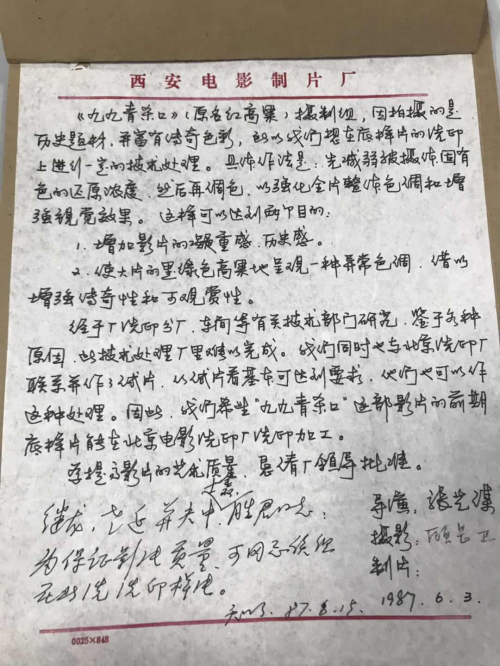 西安电影制片厂
《九九青杀口》(原名红高粱)摄制组,因拍摄的是
历史题材,并富有传奇色彩,所以我们想在底样片的洗印
上进行一定的技术处理。具体作法是:先减弱被摄体固有
色的还原浓度,然后再调色,以强化全片整体色调和增
强视觉效果。这样可以达到两个目的:
1. 增加影片的凝重感、历史感。
2. 使大片的墨绿色高粱地呈现一种异常色调,借以
增强传奇性和可观赏性。
经于厂洗印分厂、车间等有关技术部门研究,鉴于各种
原因,此技术处理厂里难以完成。我们同时也与北京洗印厂
联系并作了试片,从试片看基本可达到要求,他们也可以作
这种处理。因此,我们希望"九九青杀口"这部影片的前期
底样片能在北京电影洗印厂洗印加工。
为提高影片的艺术质量,恳请厂领导批准。
导演:张艺谋
摄影:顾长卫
制片:
1987.6.3.
同志:
为保证影片质量,可同意
在北洗洗印样片。
87.6.15.
0025×848